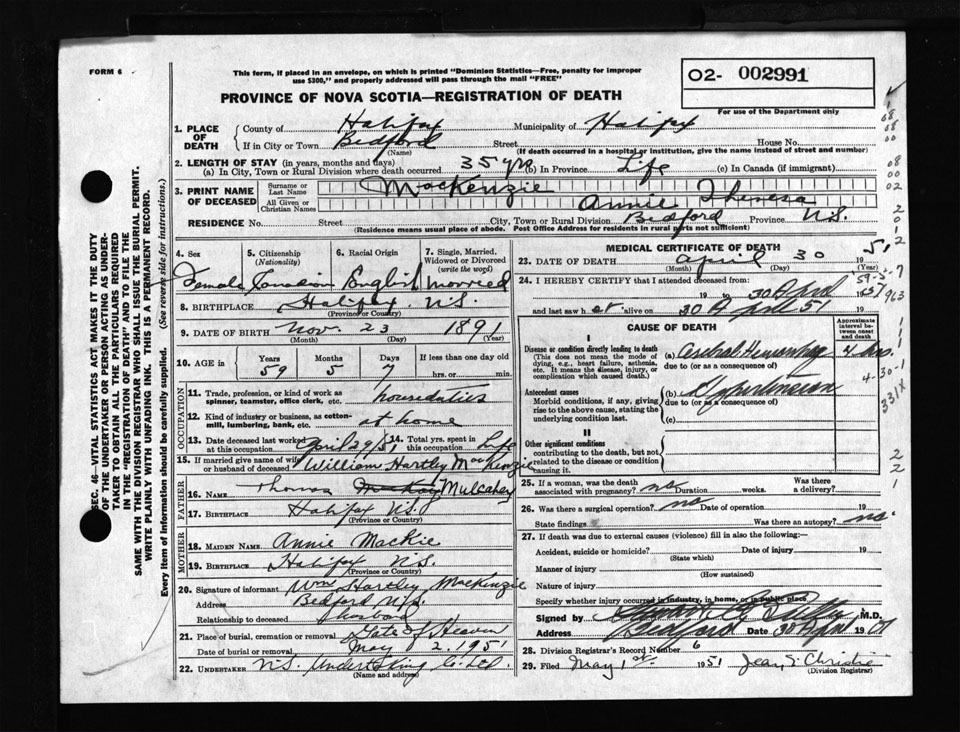 FORM 6
This form, if placed in an envelope, on which is printed "Dominion Statistics—Free, penalty for improper
use $300," and properly addressed will pass through the mail "FREE"
02- 002991
For use of the Department only
PROVINCE OF NOVA SCOTIA—REGISTRATION OF DEATH
1. PLACE OF DEATH
County of Halifax Municipality of Halifax
If in City or Town Bedford Street House No.
(Name) (If death occurred in a hospital or institution, give the name instead of street and number)
2. LENGTH OF STAY (in years, months and days)
(a) In City, Town or Rural Division where death occurred 35 yrs (b) In Province Life (c) In Canada (if immigrant)
3. PRINT NAME OF DECEASED
Surname or Last Name MacKenzie
All Given or Christian Names Annie Theresa
RESIDENCE No. Street City, Town or Rural Division Bedford Province N.S.
(Residence means usual place of abode. Post Office Address for residents in rural parts not sufficient)
4. Sex 5. Citizenship (Nationality) 6. Racial Origin 7. Single, Married, Widowed or Divorced (write the word)
Female Canadian English married
8. BIRTHPLACE Halifax N.S.
(Province or Country)
9. DATE OF BIRTH Nov. 23 1891
(Month) (Day) (Year)
10. AGE in Years Months Days If less than one day
59 5 7 hrs. or min.
OCCUPATION
11. Trade, profession, or kind of work as spinner, teamster, office clerk, etc. houseduties
12. Kind of industry or business, as cotton-mill, lumbering, bank, etc. at home
13. Date deceased last worked at this occupation April 29/51 14. Total yrs. spent in this occupation Life
15. If married give name of wife or husband of deceased William Hartley MacKenzie
FATHER
16. NAME Thomas MacKay Mulcahey
17. BIRTHPLACE Halifax N.S.
(Province or Country)
MOTHER
18. MAIDEN NAME Annie Mackie
19. BIRTHPLACE Halifax N.S.
(Province or Country)
20. Signature of informant Wm Hartley MacKenzie
Address Bedford N.S.
Relationship to deceased husband
21. Place of burial, cremation or removal Gate of Heaven
Date of burial or removal May 2, 1951
22. UNDERTAKER N.S. Undertaking Co. Ltd.
(Name and address)
MEDICAL CERTIFICATE OF DEATH
23. DATE OF DEATH April 30 1951
(Month) (Day) (Year)
24. I HEREBY CERTIFY that I attended deceased from:
19 to 30 April 1951
and last saw her alive on 30 April 51
CAUSE OF DEATH
Approximate interval between onset and death
I
Disease or condition directly leading to death
(This does not mean the mode of dying, e.g., heart failure, asthenia, etc. It means the disease, injury, or complication which caused death.)
(a) Cerebral Hemorrhage 4 hrs.
due to (or as a consequence of)
Antecedent causes
Morbid conditions, if any, giving rise to the above cause, stating the underlying condition last.
(b) Hypertension
due to (or as a consequence of)
(c)
II
Other significant conditions
contributing to the death, but not related to the disease or condition causing it.
25. If a woman, was the death associated with pregnancy? no Duration weeks. Was there a delivery?
26. Was there a surgical operation? no Date of operation 19
State findings Was there an autopsy? no.
27. If death was due to external causes (violence) fill in also the following:—
Accident, suicide or homicide? Date of injury 19
(State which)
Manner of injury
(How sustained)
Nature of injury
Specify whether injury occurred in industry, in home, or in public place
Signed by M.D.
Address Bedford Date 30 April 1951
28. Division Registrar's Record Number 6
29. Filed May 1st. 1951 Jean S. Christie
(Division Registrar)
SEC. 46—VITAL STATISTICS ACT MAKES IT THE DUTY
OF THE UNDERTAKER OR PERSON ACTING AS UNDERTAKER TO OBTAIN ALL THE PARTICULARS REQUIRED
IN THE "REGISTRATION OF DEATH" AND TO FILE THE
SAME WITH THE DIVISION REGISTRAR WHO SHALL ISSUE THE BURIAL PERMIT.
WRITE PLAINLY WITH UNFADING INK. THIS IS A PERMANENT RECORD.
Every item of Information should be carefully supplied. (See reverse side for instructions.)